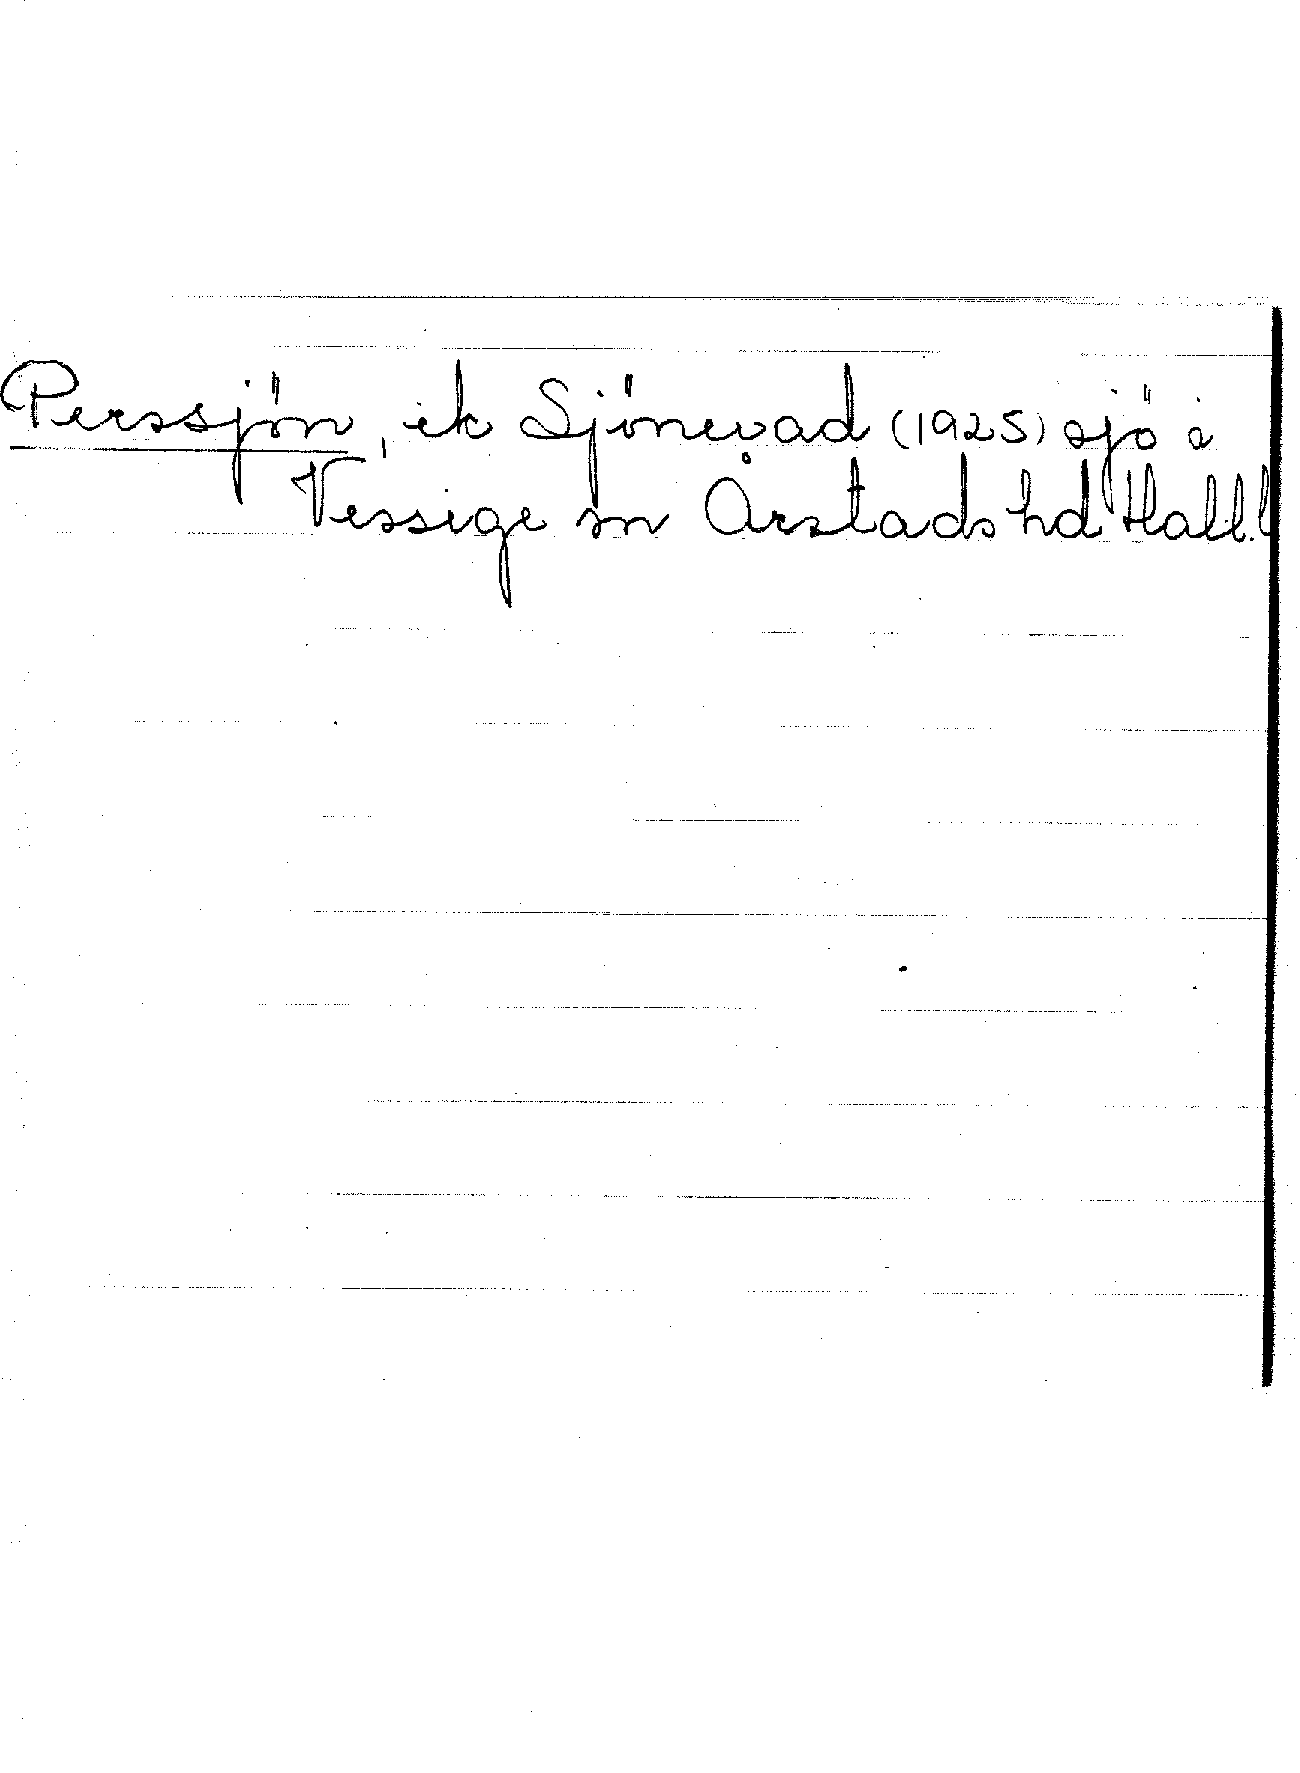 Perssjön, ek Sjönevad (1925) sjö i
Vessige sn Årstads hd Hall.l